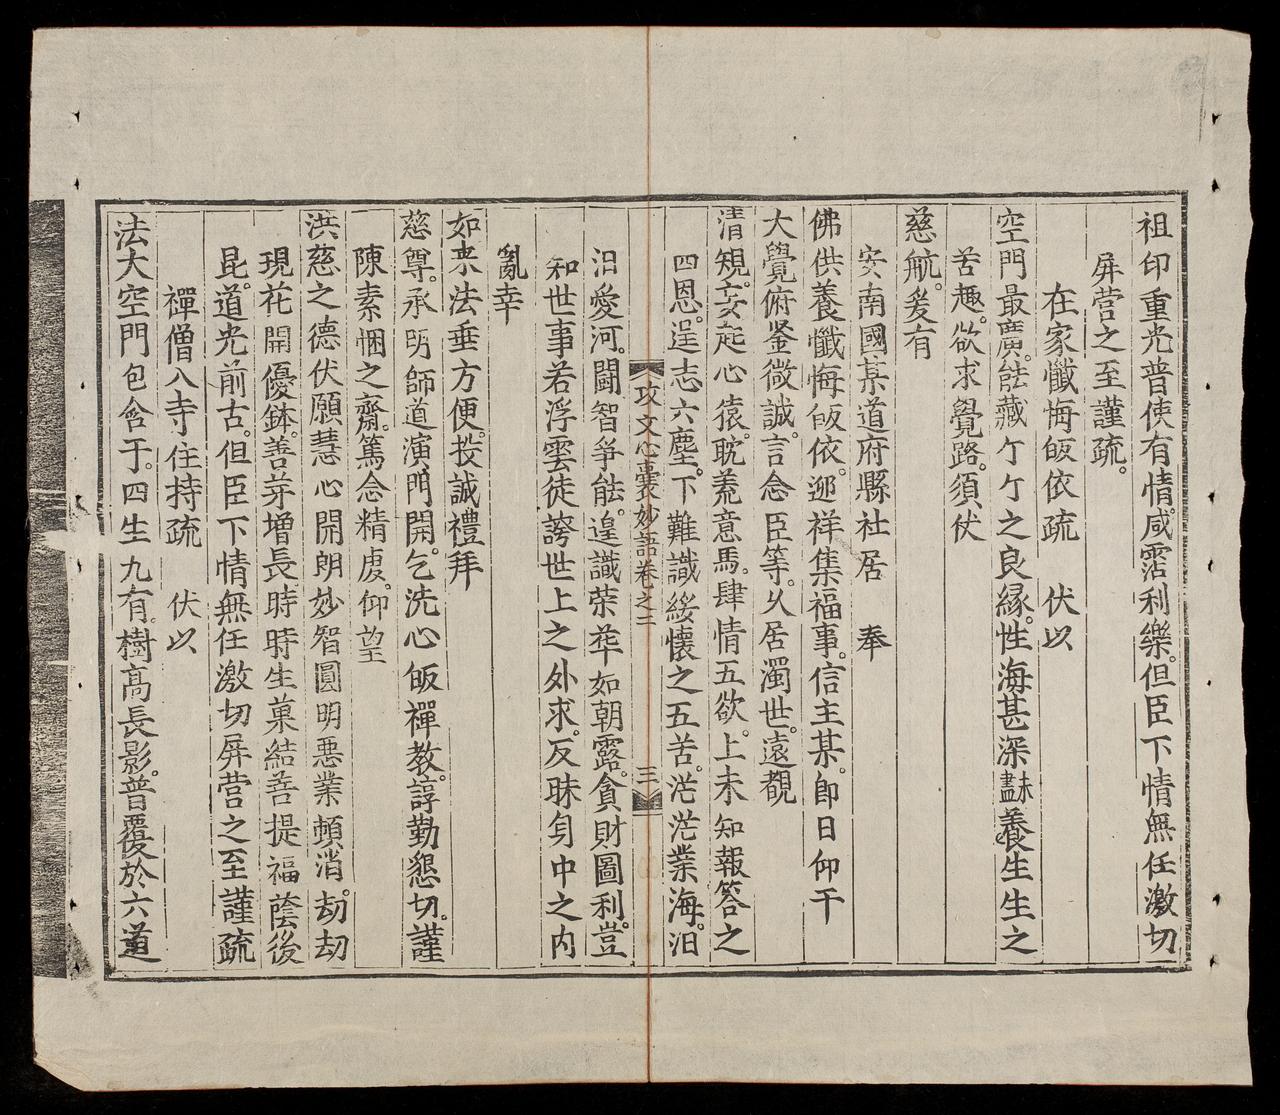 祖印重光普使有情。咸霑利樂。但臣下情無任激切
屏营之至謹疏。
在家懺悔皈依疏　伏以
空門最廣。能藏𠆧𠆧之良緣。性海甚深𧆄養生生之
苦趣。欲求覺路。須伏
慈航。爰有
安南國某道府縣社居　奉
佛供養懺悔皈依。迎祥集福事。信主某。即日仰干
大覺俯鉴微誠。言念臣等。久居濁世。遠覩
清規。妄起心猿。耽羗意馬。肆情五欲。上未知報答之
四恩。逞志六塵。下難識綏懷之五苦。茫茫業海。汨
汨愛河。鬪智爭能。遑識荣花如朝露。貪財圖利。豈
攻文心囊妙語卷之二　三
知世事若浮雲徒誇世上之外求。反昧身中之内
亂幸
如来法垂方便。投誠禮拜
慈尊。承明師道演門開。乞洗心皈禪教。諄勤懇切。謹
陳素悃之齋。篤念精虔。仰望
洪慈之德伏願慧心開朗妙智圓明惡業頓消。劫劫
現花開優鉢。善芽增長時時生菓結菩提福蔭後
昆。道光前古。但臣下情無任激切屏营之至謹疏
禪僧入寺住持疏　伏以
法大空門包含于。四生九有。樹高長影。普覆於六道